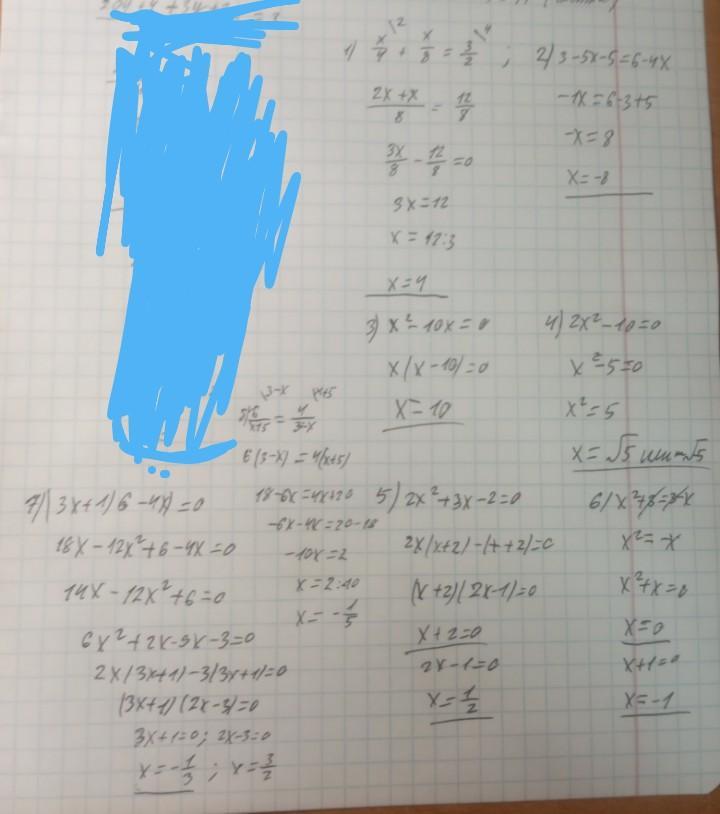 1) x/4 \2 + x/8 = 3/2 \4 ;
2x+x/8 = 12/8
3x/8 - 12/8 = 0
3x=12
x = 12:3
x=4
2) 3-5x-5=6-4x
-1x=6-3+5
-x=8
x=-8
3) x²-10x=0
x(x-10)=0
x=10
4) 2x²-10=0
x²-5=0
x²=5
x=√5 или -√5
6/x+5 \3-x = 4/3-x \x+5
6(3-x) = 4(x+5)
18-6x=4x+20
-6x-4x=20-18
-10x=2
x=2:10
x=-1/5
7) (3x+1)(6-4x)=0
18x-12x²+6-4x=0
14x-12x²+6=0
6x²+2x-9x-3=0
2x(3x+1)-3(3x+1)=0
(3x+1)(2x-3)=0
3x+1=0; 2x-3=0
x=-1/3 ; x=3/2
5) 2x²+3x-2=0
2x(x+2)-(x+2)=0
(x+2)(2x-1)=0
x+2=0
2x-1=0
x=1/2
6) x²+3=3-x
x²=-x
x²+x=0
x=0
x+1=0
x=-1